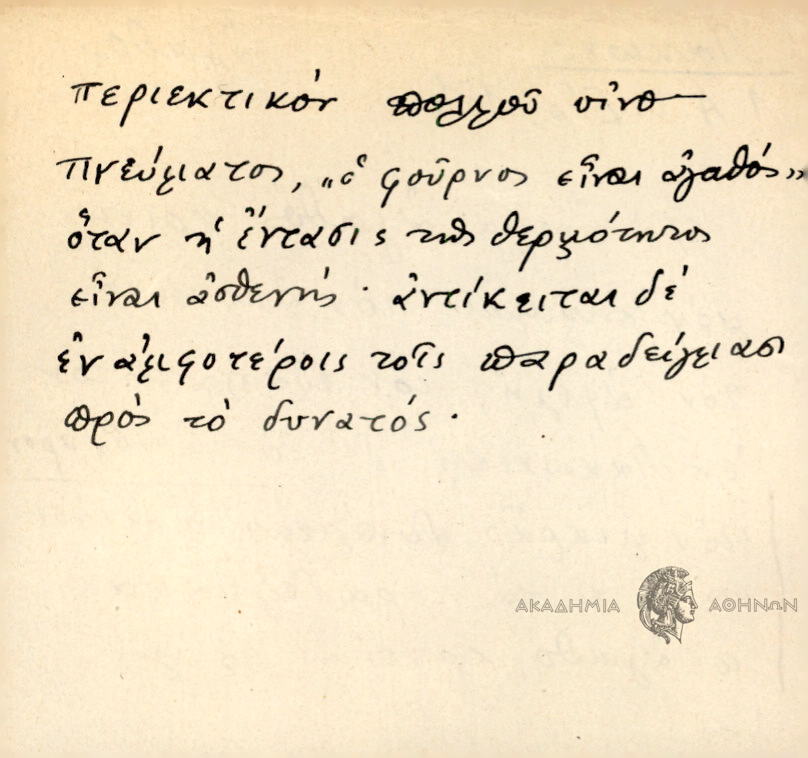 περιεκτικὸν πολλοῦ οἰνο-
πνεύματος, „ὁ φοῦρνος εἶναι ἀγαθός„
ὅταν ἡ ἔντασις τῆς θερμότητος
εἶναι ἀσθενής· ἀντίκειται δὲ
ἐν ἀμφοτέροις τοῖς παραδείγμασι
πρὸς τὸ δυνατός.
ΑΚΑΔΗΜΙΑ ΑΘΗΝΩΝ